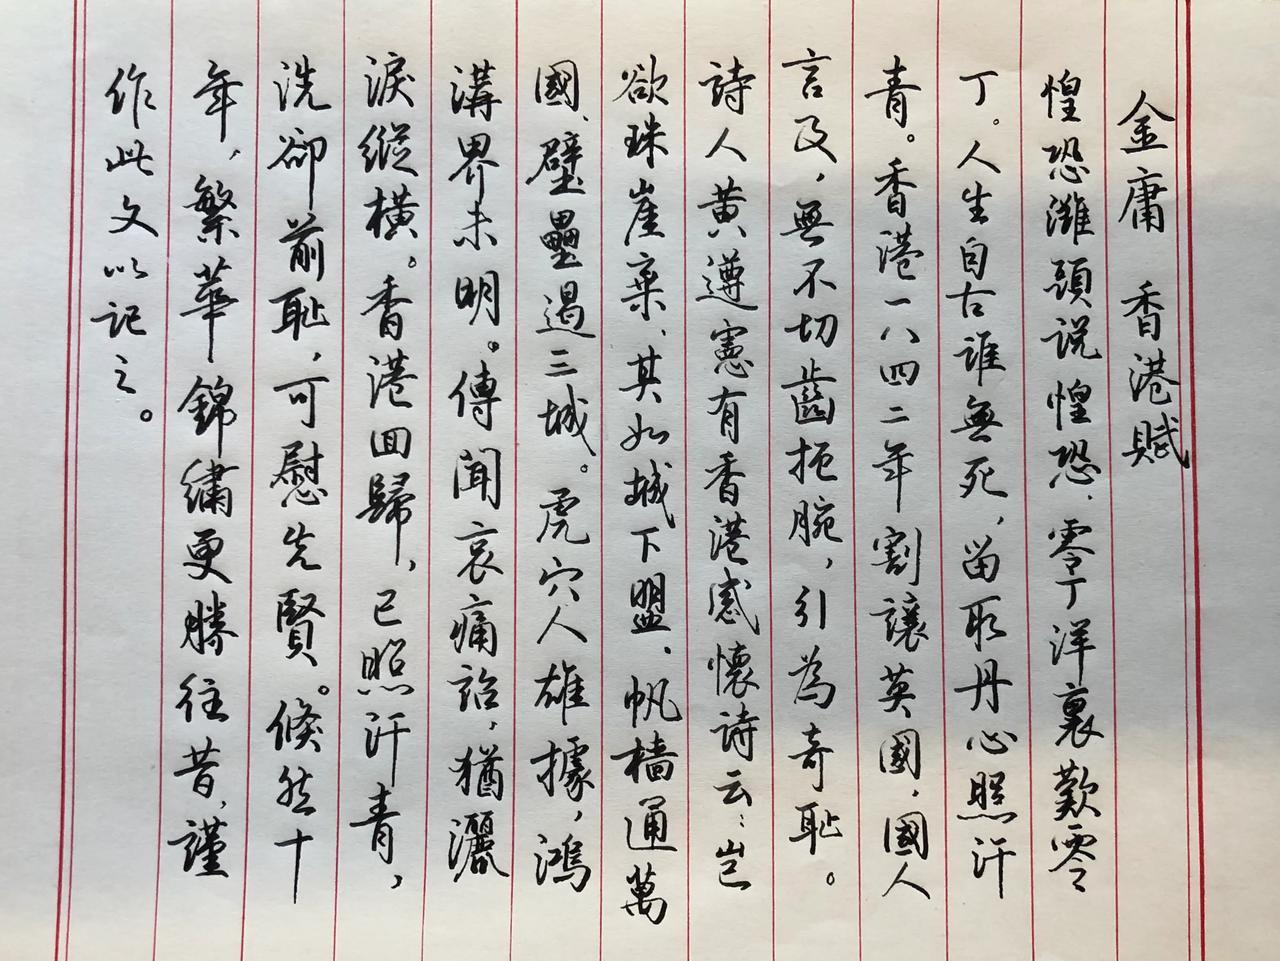 金庸 香港賦
惶恐灘頭説惶恐、零丁洋裏歎零
丁。人生自古誰無死,留取丹心照汗
青。香港一八四二年割讓英國,國人
言及,無不切齒扼腕,引為奇恥。
詩人黃遵憲有香港感懷詩云:豈
欲珠崖棄、其如城下盟、帆檣通萬
國、壁壘遏三城。虎穴人雄據,鴻
溝界未明。傳聞哀痛詔,猶灑
淚縱橫。香港回歸,已照汗青,
洗卻前恥,可慰先賢。倏然十
年,繁華錦繡更勝往昔,謹
作此文以記之。